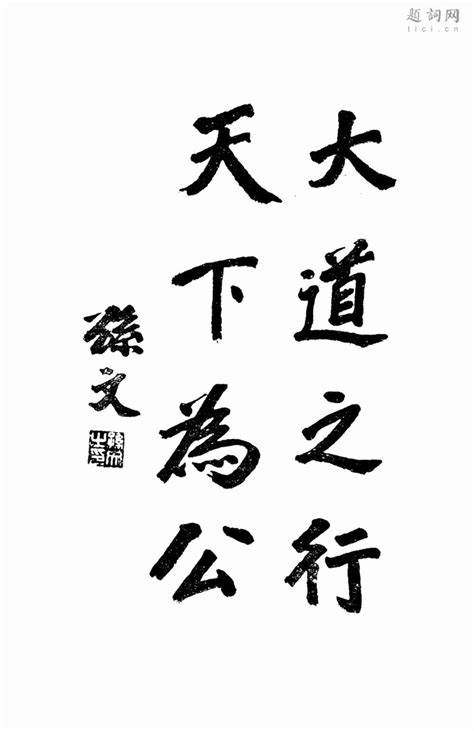 大道之行
天下為公
孫文
孫文之印
題詞网
tici.cn